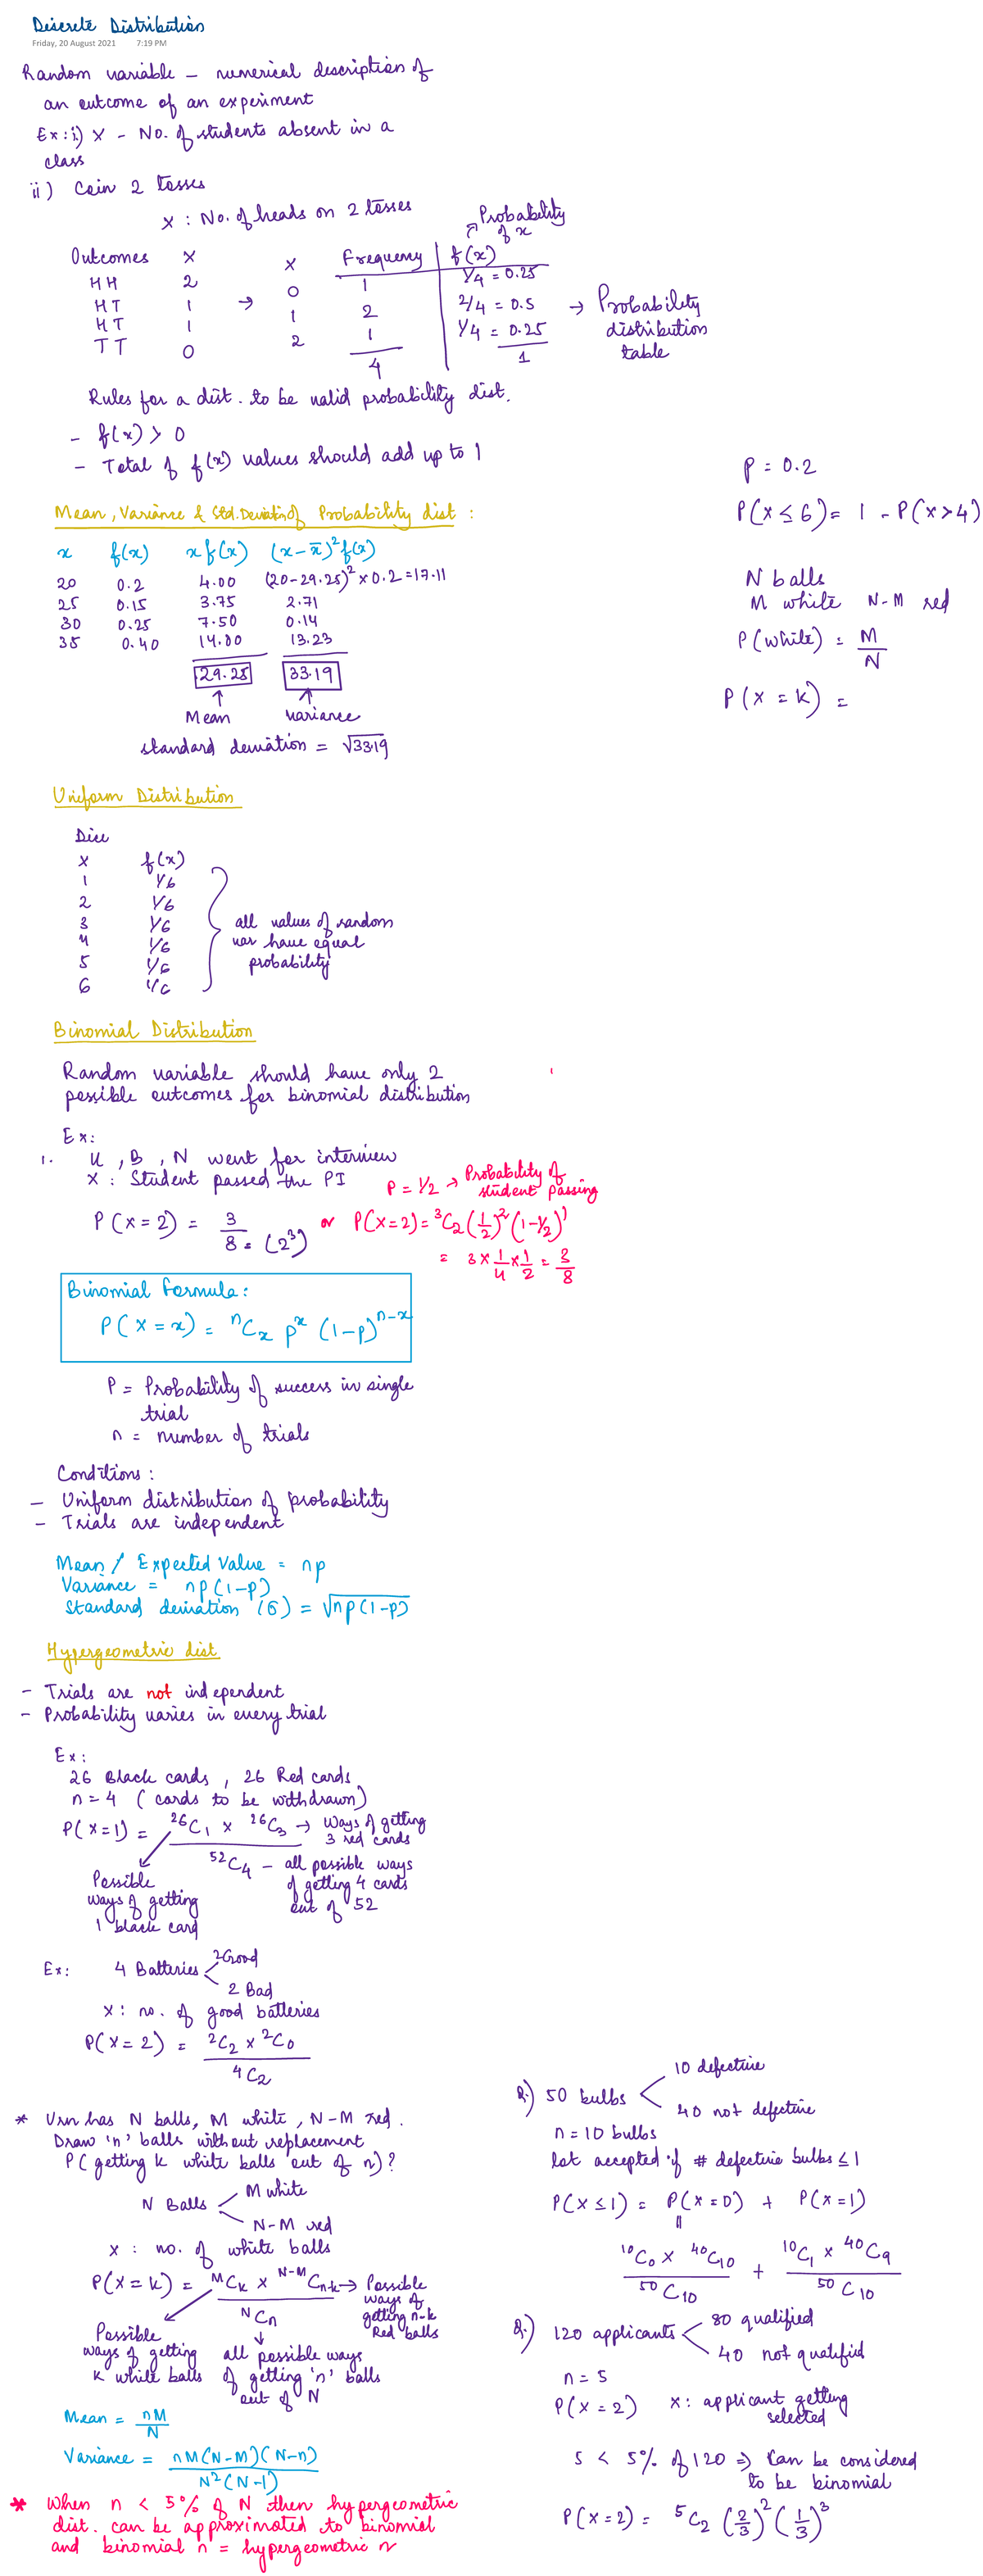 Discrete Distribution
Friday, 20 August 2021 7:19 PM
Random variable – numerical description of
an outcome of an experiment
Ex: i) X – No. of students absent in a
class
ii) Coin 2 tosses
X : No. of heads on 2 tosses
Probability
of x
Outcomes X
HH 2
HT 1
HT 1
TT 0
→
X Frequency f(x)
0 1 1/4 = 0.25
1 2 2/4 = 0.5
2 1 1/4 = 0.25
4 1
→ Probability
distribution
table
Rules for a dist. to be valid probability dist.
- f(x) > 0
- Total of f(x) values should add up to 1
Mean, Variance & Std. Deviation of Probability dist :
x f(x) x f(x) (x - x̄)² f(x)
20 0.2 4.00 (20-29.25)² × 0.2 = 17.11
25 0.15 3.75 2.71
30 0.25 7.50 0.14
35 0.40 14.00 13.23
29.25 33.19
↑ ↑
Mean variance
standard deviation = √33.19
P = 0.2
P(X ≤ 6) = 1 - P(X > 4)
N balls
M white N-M red
P(white) = M/N
P(X = K) =
Uniform Distribution
Dice
X f(x)
1 1/6
2 1/6
3 1/6
4 1/6
5 1/6
6 1/6
all values of random
var have equal
probability
Binomial Distribution
Random variable should have only 2
possible outcomes for binomial distribution
Ex:
1. U, B, N went for interview
X : Student passed the PI
P = 1/2 → Probability of
student passing
P(X = 2) = 3/8 = (2³) or P(X=2) = ³C₂ (1/2)² (1-1/2)¹
= 3 × 1/4 × 1/2 = 3/8
Binomial Formula:
P(X = x) = ⁿCₓ pˣ (1-p)ⁿ⁻ˣ
P = Probability of success in single
trial
n = number of trials
Conditions :
- Uniform distribution of probability
- Trials are independent
Mean / Expected Value = np
Variance = np(1-p)
Standard deviation (σ) = √np(1-p)
Hypergeometric dist
- Trials are not independent
- Probability varies in every trial
Ex:
26 Black cards, 26 Red cards
n = 4 (cards to be withdrawn)
P(X=1) = ²⁶C₁ × ²⁶C₃ → Ways of getting
3 red cards
⁵²C₄ – all possible ways
of getting 4 cards
out of 52
Possible
ways of getting
1 black card
Ex: 4 Batteries
2 Good
2 Bad
X : no. of good batteries
P(X = 2) = ²C₂ × ²C₀
⁴C₂
* Urn has N balls, M white, N-M red.
Draw 'n' balls without replacement
P(getting k white balls out of n)?
N Balls
M white
N-M red
X : no. of white balls
P(X = k) = ᴹCₖ × ᴺ⁻ᴹCₙ₋ₖ → Possible
ways of
getting n-k
Red balls
ᴺCₙ
Possible
ways of getting
k white balls
all possible ways
of getting 'n' balls
out of N
Mean = nM/N
Variance = nM(N-M)(N-n)
N²(N-1)
* When n < 5% of N then hypergeometric
dist. can be approximated to binomial
and binomial n = hypergeometric n
Q.) 50 bulbs
10 defective
40 not defective
n = 10 bulbs
lot accepted if # defective bulbs ≤ 1
P(X ≤ 1) = P(X = 0) + P(X = 1)
¹⁰C₀ × ⁴⁰C₁₀ + ¹⁰C₁ × ⁴⁰C₉
⁵⁰C₁₀ ⁵⁰C₁₀
Q.) 120 applicants
80 qualified
40 not qualified
n = 5
P(X = 2) X : applicant getting
selected
5 < 5% of 120 ⇒ Can be considered
to be binomial
P(X = 2) = ⁵C₂ (2/3)² (1/3)³